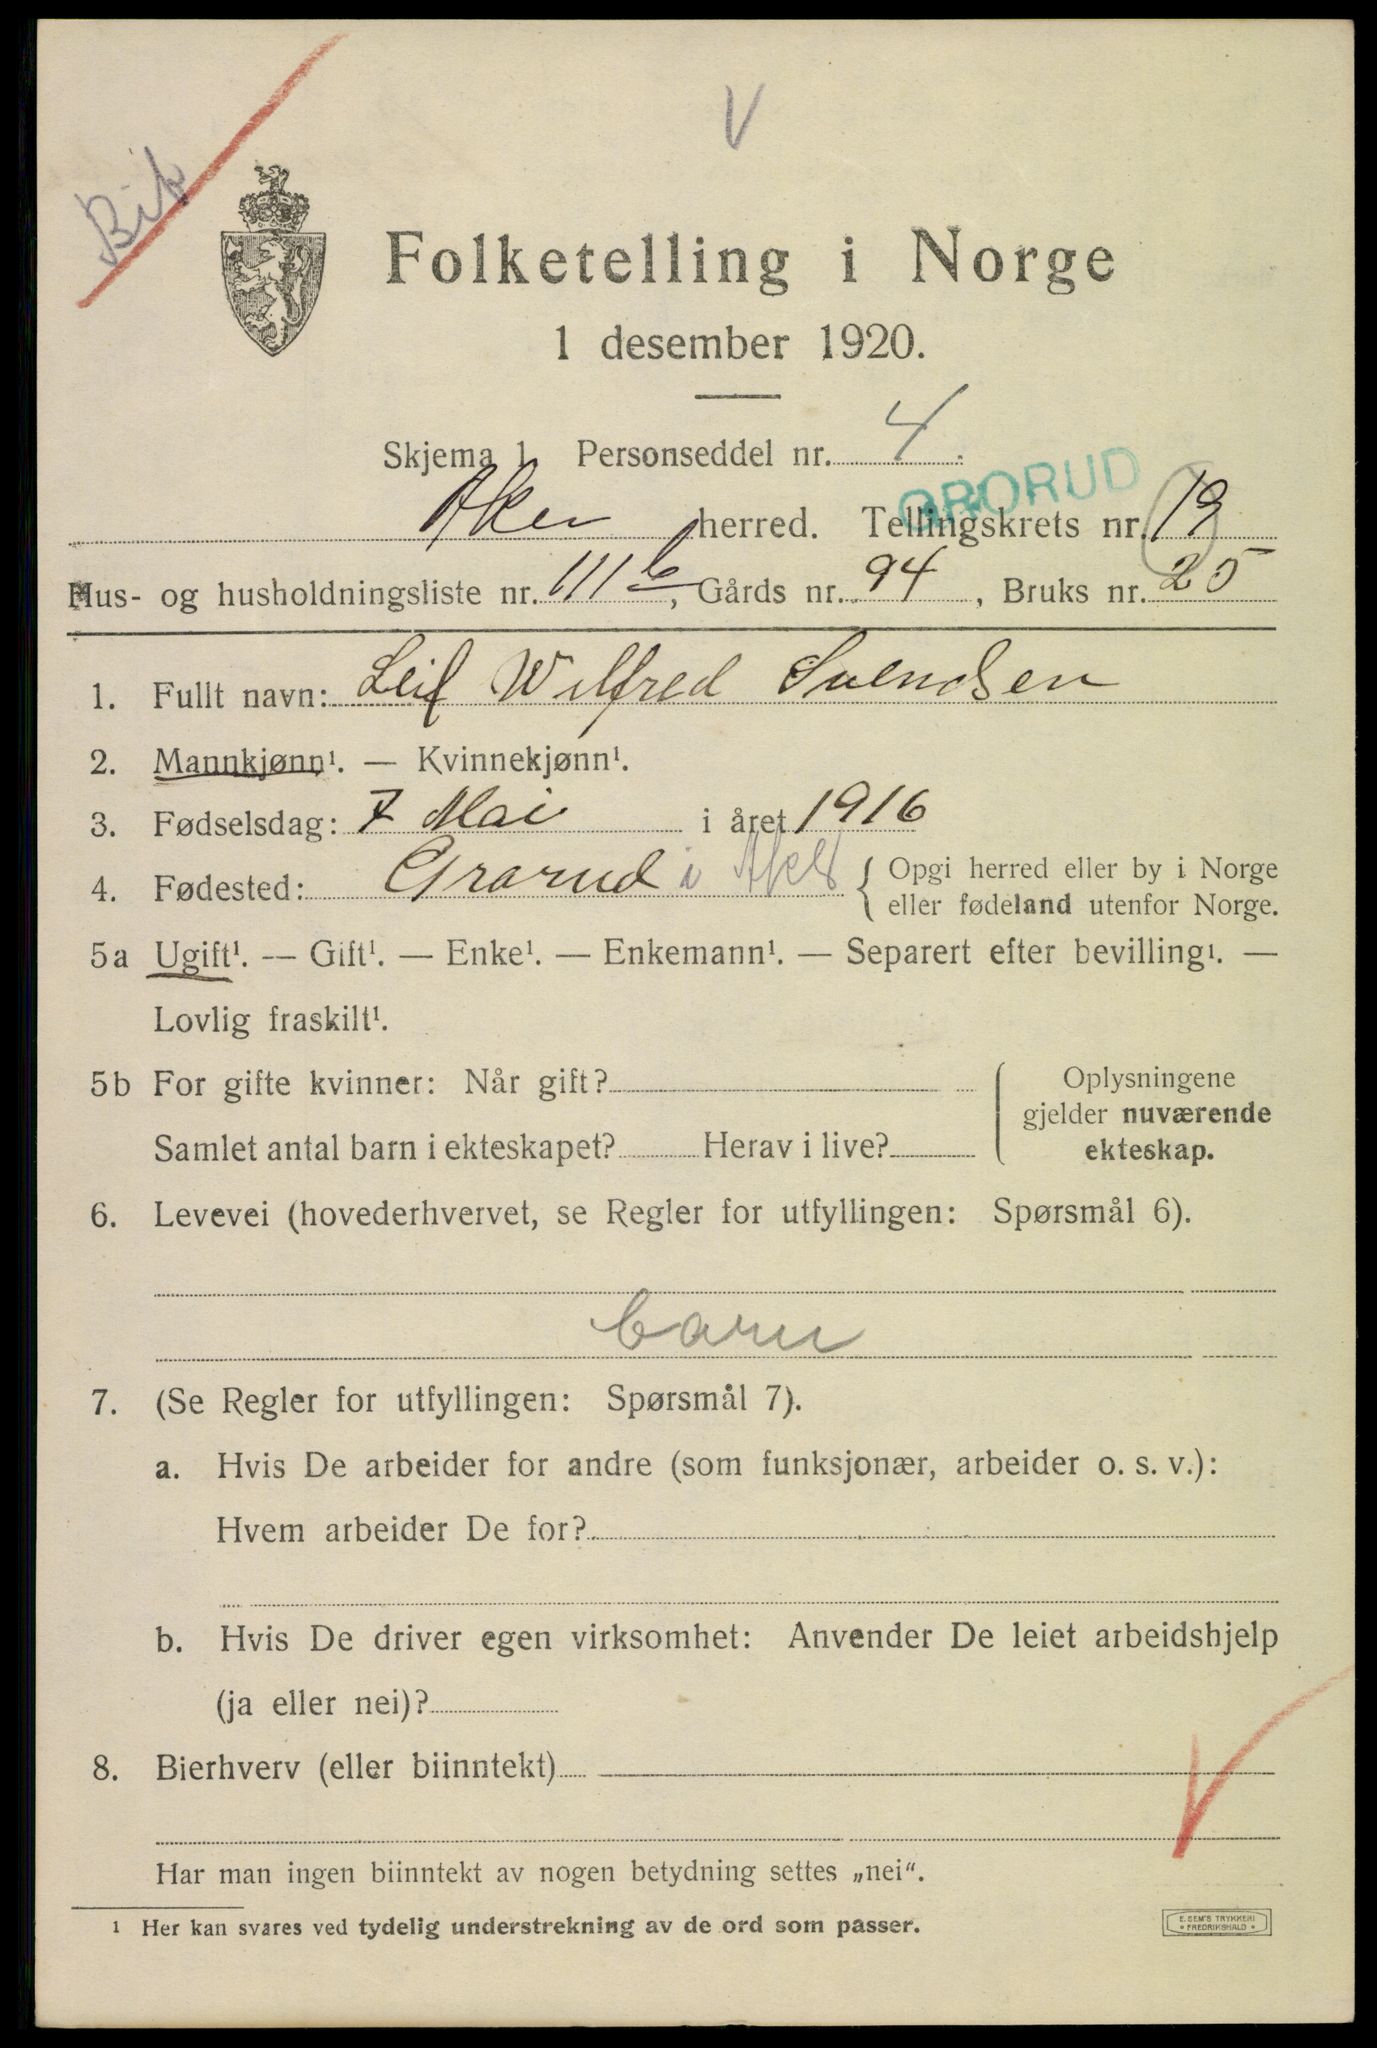 V
Bik
Folketelling i Norge
1 desember 1920.
Skjema 1. Personseddel nr. 4.
GRORUD
Aker herred. Tellingskrets nr. 19
Hus- og husholdningsliste nr. 111 b, Gårds nr. 94, Bruks nr. 25
1. Fullt navn: Leif Wilfred Svendsen
2. Mannkjønn¹. — Kvinnekjønn¹.
3. Fødselsdag: 7 Mai i året 1916
4. Fødested: Grorud i Aker { Opgi herred eller by i Norge
eller fødeland utenfor Norge.
5a Ugift¹. — Gift¹. — Enke¹. — Enkemann¹. — Separert efter bevilling¹. —
Lovlig fraskilt¹.
5b For gifte kvinner: Når gift?
Samlet antal barn i ekteskapet? Herav i live?
{ Oplysningene
gjelder nuværende
ekteskap.
6. Levevei (hovederhvervet, se Regler for utfyllingen: Spørsmål 6).
barn
7. (Se Regler for utfyllingen: Spørsmål 7).
a. Hvis De arbeider for andre (som funksjonær, arbeider o. s. v.):
Hvem arbeider De for?
b. Hvis De driver egen virksomhet: Anvender De leiet arbeidshjelp
(ja eller nei)?
8. Bierhverv (eller biinntekt)
Har man ingen biinntekt av nogen betydning settes „nei“.
¹ Her kan svares ved tydelig understrekning av de ord som passer.
E. SEM'S TRYKKERI
FREDRIKSHALD